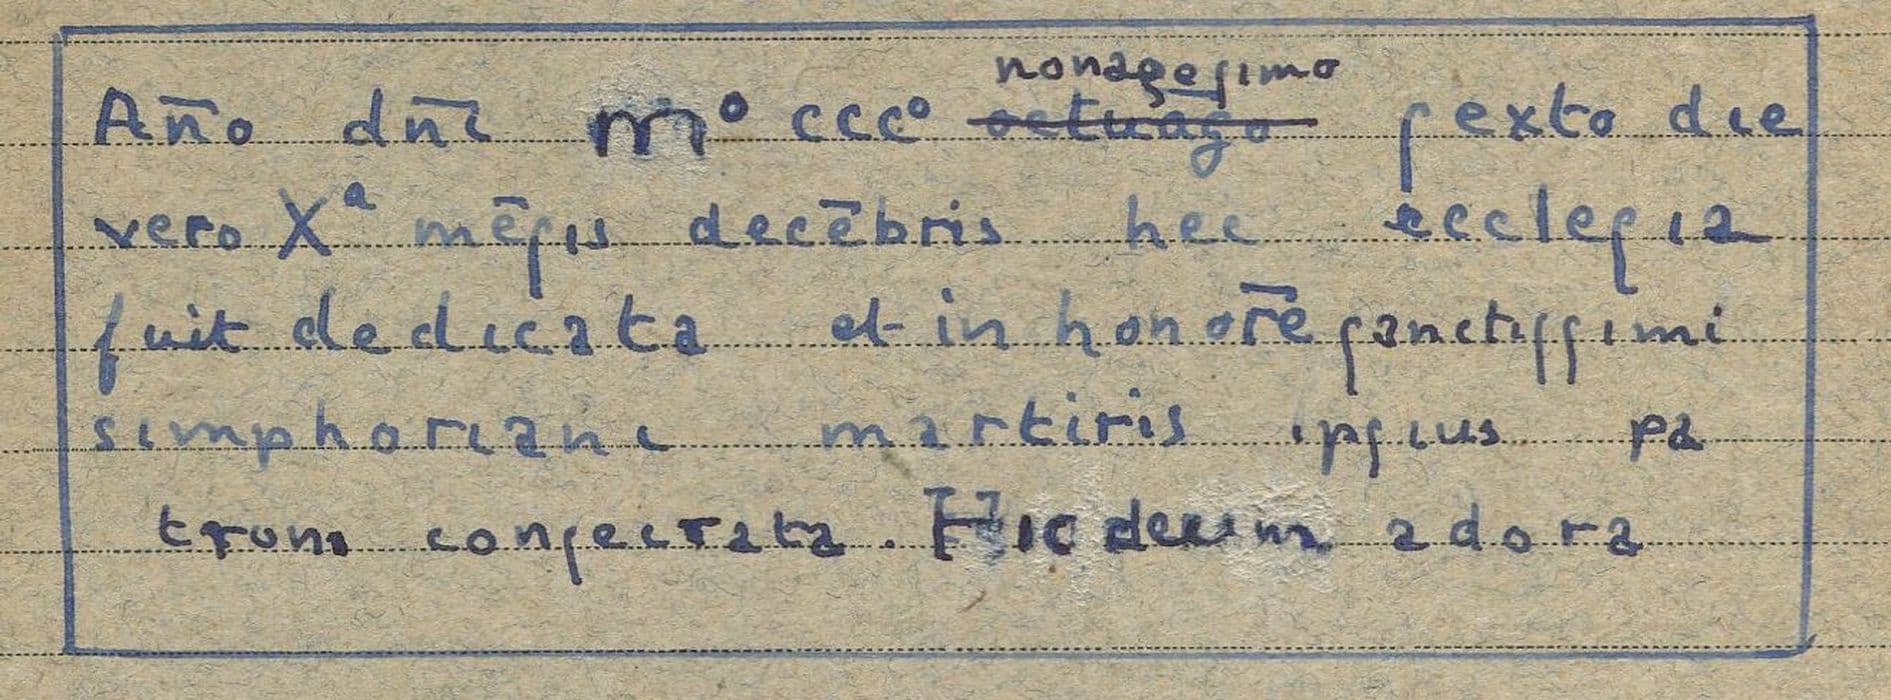 nonagesimo
Año dn̄i m° ccc° octuāgo ſexto die
vero Xª mēſis decēbris hec eccleſia
fuit dedicata et in honor̄e ſanctiſſimi
simphoriani martiris ipſius pa
troni conſecrata. Hic deum adora